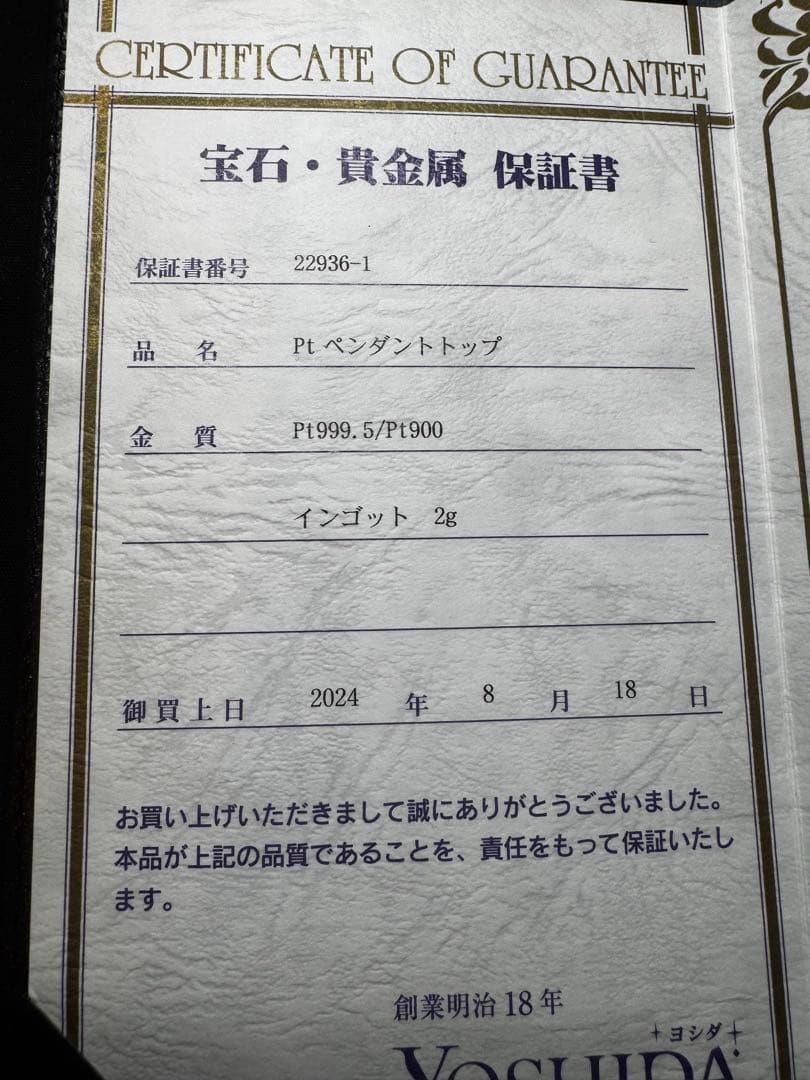 CERTIFICATE OF GUARANTEE
宝石・貴金属 保証書
保証書番号 22936-1
品名 Pt ペンダントトップ
金質 Pt999.5/Pt900
インゴット 2g
御買上日 2024 年 8 月 18 日
お買い上げいただきまして誠にありがとうございました。
本品が上記の品質であることを、責任をもって保証いたし
ます。
創業明治18年
ヨシダ
YOSHIDA